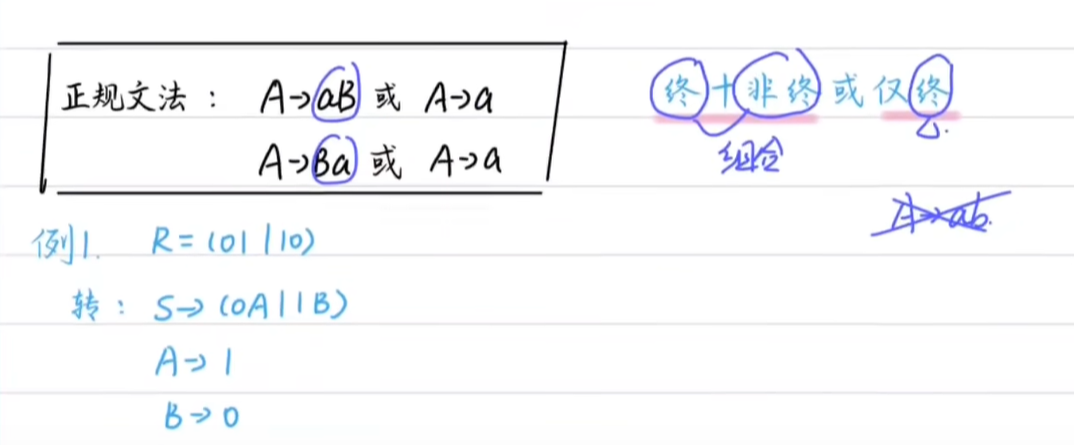 正规文法： A→aB 或 A→a
A→Ba 或 A→a
终+非终或仅终
组合
A→ab.
例1. R=(01|10)
转： S→(0A|1B)
A→1
B→0